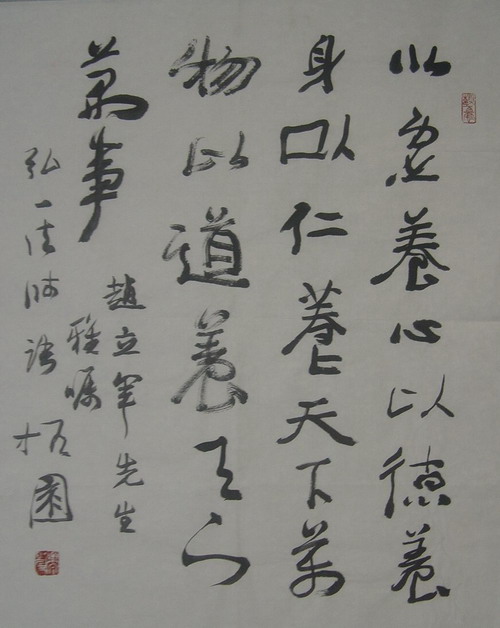 以虚養心以德養
身以仁養天下萬
物以道養天下
萬事
趙立軍先生
雅嘱
弘一法师語